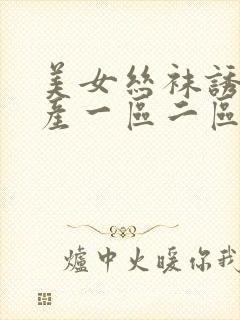 美女絲袜誘
産一區二區
爐中火暖你我